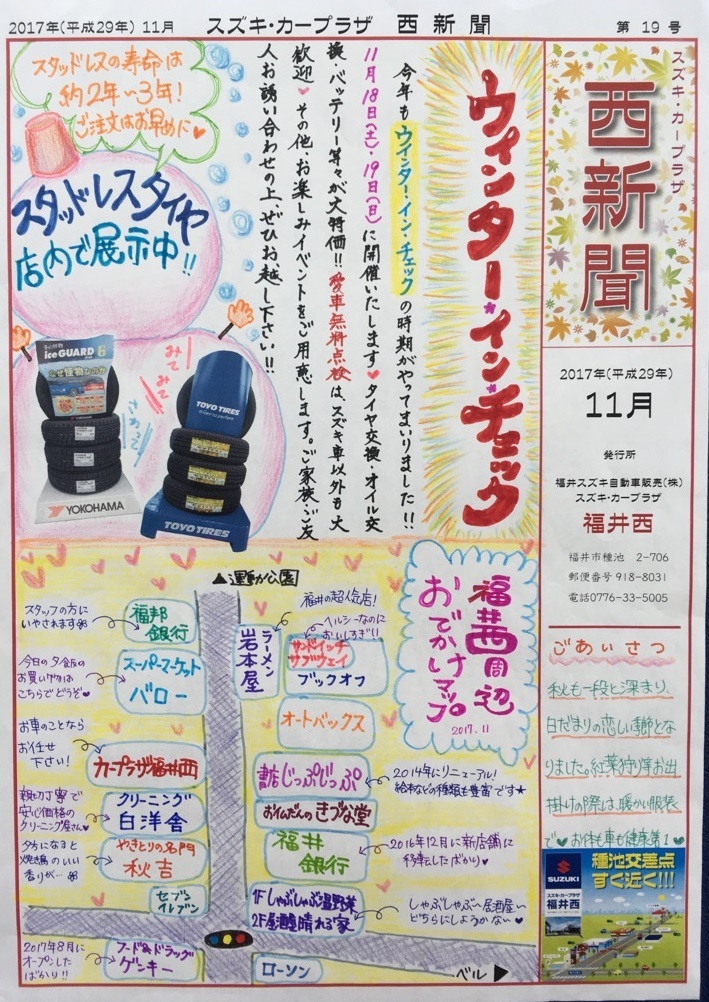 2017年(平成29年) 11月
スズキ・カープラザ 西新聞
第 19 号
スズキ・カープラザ
西新聞
2017年(平成29年)
11月
発行所
福井スズキ自動車販売(株)
スズキ・カープラザ
福井西
福井市種池 2-706
郵便番号 918-8031
電話0776-33-5005
ごあいさつ
秋も一段と深まり、
日だまりの恋しい季節とな
りました。紅葉狩り等お出
掛けの際は、暖かい服装
で♥お体も車も健康第1♥
SUZUKI
スズキ・カープラザ
福井西
種池交差点
すぐ近く!!!
ウィンター・イン・チェック
今年もウインター・イン・チェックの時期がやってまいりました!!
11月18日(土)・19日(日)に開催いたします♥タイヤ交換・オイル交
換、バッテリー等々が大特価!!愛車無料点検は、スズキ車以外も大
歓迎♥その他・お楽しみイベントをご用意します。ご家族・ご友
人お誘い合わせの上、ぜひお越し下さい!!
スタッドレスの寿命は
約2年〜3年!
ご注文はお早めに♥
スタッドレスタイヤ
店内で展示中!!
みて
みて
さわって
iceGUARD 6
YOKOHAMA
TOYO TIRES
TOYO TIRES
福井西周辺
おでかけマップ
2017.11
▲運動公園
スタッフの方に
いやされます
福邦
銀行
今日の夕飯の
お買い物は
こちらでどうぞ♥
スーパーマーケット
バロー
お車のことなら
お任せ
下さい!
カープラザ福井西
親切丁寧で
安心価格の
クリーニング屋さん♥
クリーニング
白洋舎
夕方になると
焼き鳥のいい
香りが…
やきとりの名門
秋吉
セブン
イレブン
2017年8月に
オープンした
ばかり!!
フード&ドラッグ
ゲンキー
ラーメン
岩本屋
福井の超人気店!
ヘルシーなのに
おいしすぎ!!
サンドイッチ
サブウェイ
ブックオフ
オートバックス
書店じっぷじっぷ
2014年にリニューアル!
絵本などの種類も豊富です★
お仏だんのきづな堂
福井
銀行
2016年12月に新店舗に
移転したばかり♥
1Fしゃぶしゃぶ温野菜
2F居酒屋晴れる家
しゃぶしゃぶ〜居酒屋〜
どちらにしようかな♡
ローソン
ベル▶